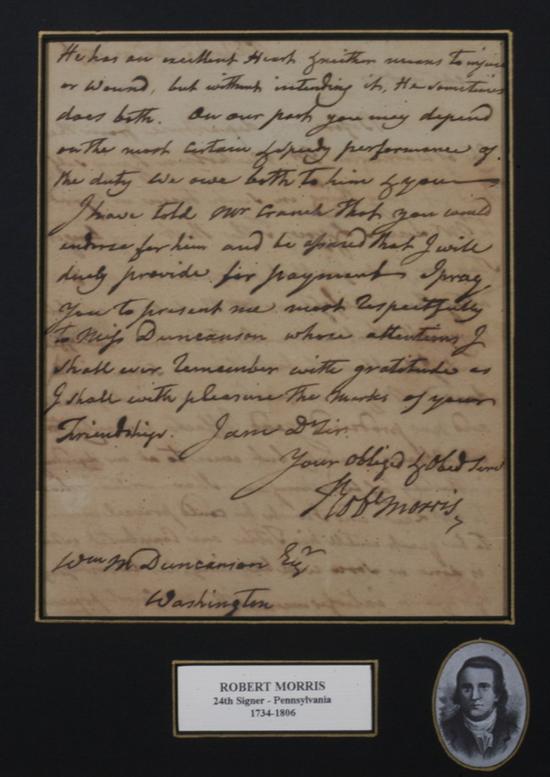 He has an excellent Heart & neither means to injure
or wound, but without intending it, He sometimes
does both. On our part you may depend
on the most certain & speedy performance of
the duty we owe both to him & you
I have told Mr Cranch that you would
endorse for him and be assured that I will
duly provide for payment I pray
You to present me most Respectfully
to Miss Duncanson whose attentions I
shall ever remember with gratitude as
I shall with pleasure the Marks of your
Friendship. I am Dr Sir
Your obliged & Obed Serv
Robt Morris
Wm M Duncanson Esqr
Washington
ROBERT MORRIS
24th Signer - Pennsylvania
1734-1806